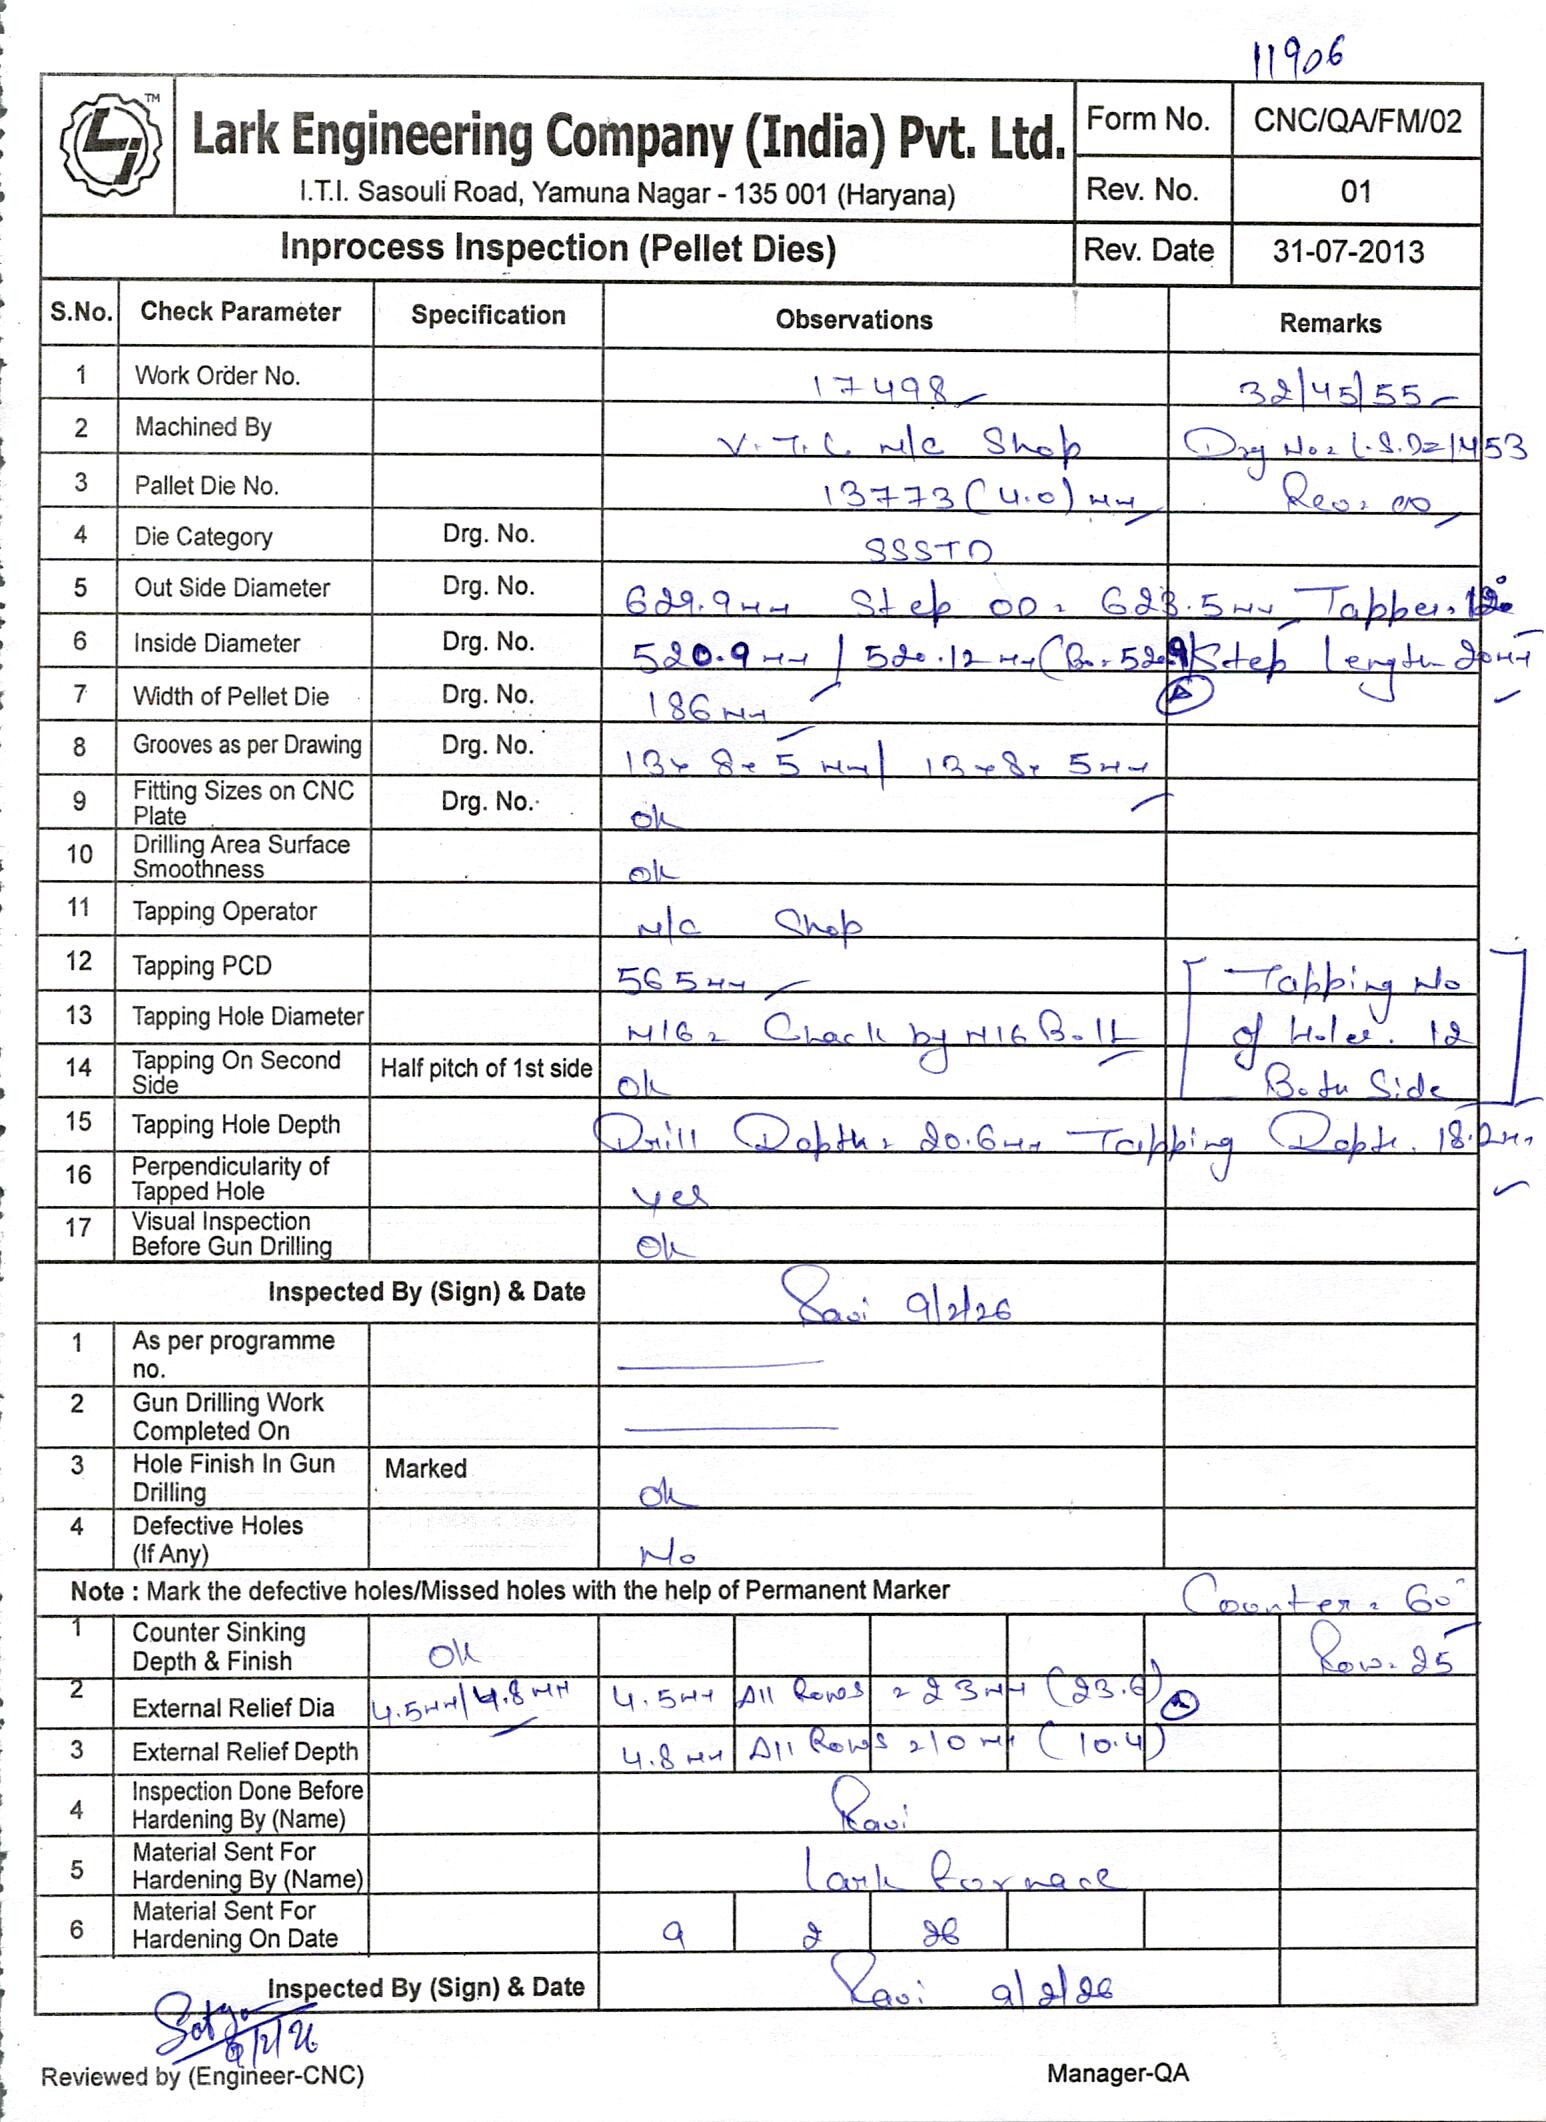 11906
TM
Lark Engineering Company (India) Pvt. Ltd.
I.T.I. Sasouli Road, Yamuna Nagar - 135 001 (Haryana)
Form No. CNC/QA/FM/02
Rev. No. 01
Inprocess Inspection (Pellet Dies) Rev. Date 31-07-2013
S.No. Check Parameter Specification Observations Remarks
1 Work Order No. 17498 32/45/55
2 Machined By V.T.L. M/C Shop Drg No = L.S.D=1453
3 Pallet Die No. 13773 (4.0) mm Rev = 00
4 Die Category Drg. No. SSSTD
5 Out Side Diameter Drg. No. 629.9mm Step OD = 623.5mm Tapper = 120°
6 Inside Diameter Drg. No. 520.9mm / 520.12mm Step length 20mm
7 Width of Pellet Die Drg. No. 186mm A
8 Grooves as per Drawing Drg. No. 13x8x5mm / 13x8x5mm
9 Fitting Sizes on CNC Plate Drg. No. ok
10 Drilling Area Surface Smoothness ok
11 Tapping Operator M/C Shop
12 Tapping PCD 565mm Tapping No
13 Tapping Hole Diameter M16 = Chack by M16 Bolt of Holes = 12
14 Tapping On Second Side Half pitch of 1st side ok Both Side
15 Tapping Hole Depth Drill Depth = 20.6mm Tapping Depth = 18.2mm
16 Perpendicularity of Tapped Hole yes
17 Visual Inspection Before Gun Drilling ok
Inspected By (Sign) & Date Ravi 9/2/26
1 As per programme no.
2 Gun Drilling Work Completed On
3 Hole Finish In Gun Drilling Marked ok
4 Defective Holes (If Any) No
Note : Mark the defective holes/Missed holes with the help of Permanent Marker Counter = 60°
1 Counter Sinking Depth & Finish ok Row = 25
2 External Relief Dia 4.5mm/4.8mm 4.5mm All Rows = 23mm (23.6) A
3 External Relief Depth 4.8mm All Rows = 10mm (10.4)
4 Inspection Done Before Hardening By (Name) Ravi
5 Material Sent For Hardening By (Name) Lark Fornace
6 Material Sent For Hardening On Date 9 2 26
Inspected By (Sign) & Date Ravi 9/2/26
Satya
9/2/26
Reviewed by (Engineer-CNC) Manager-QA